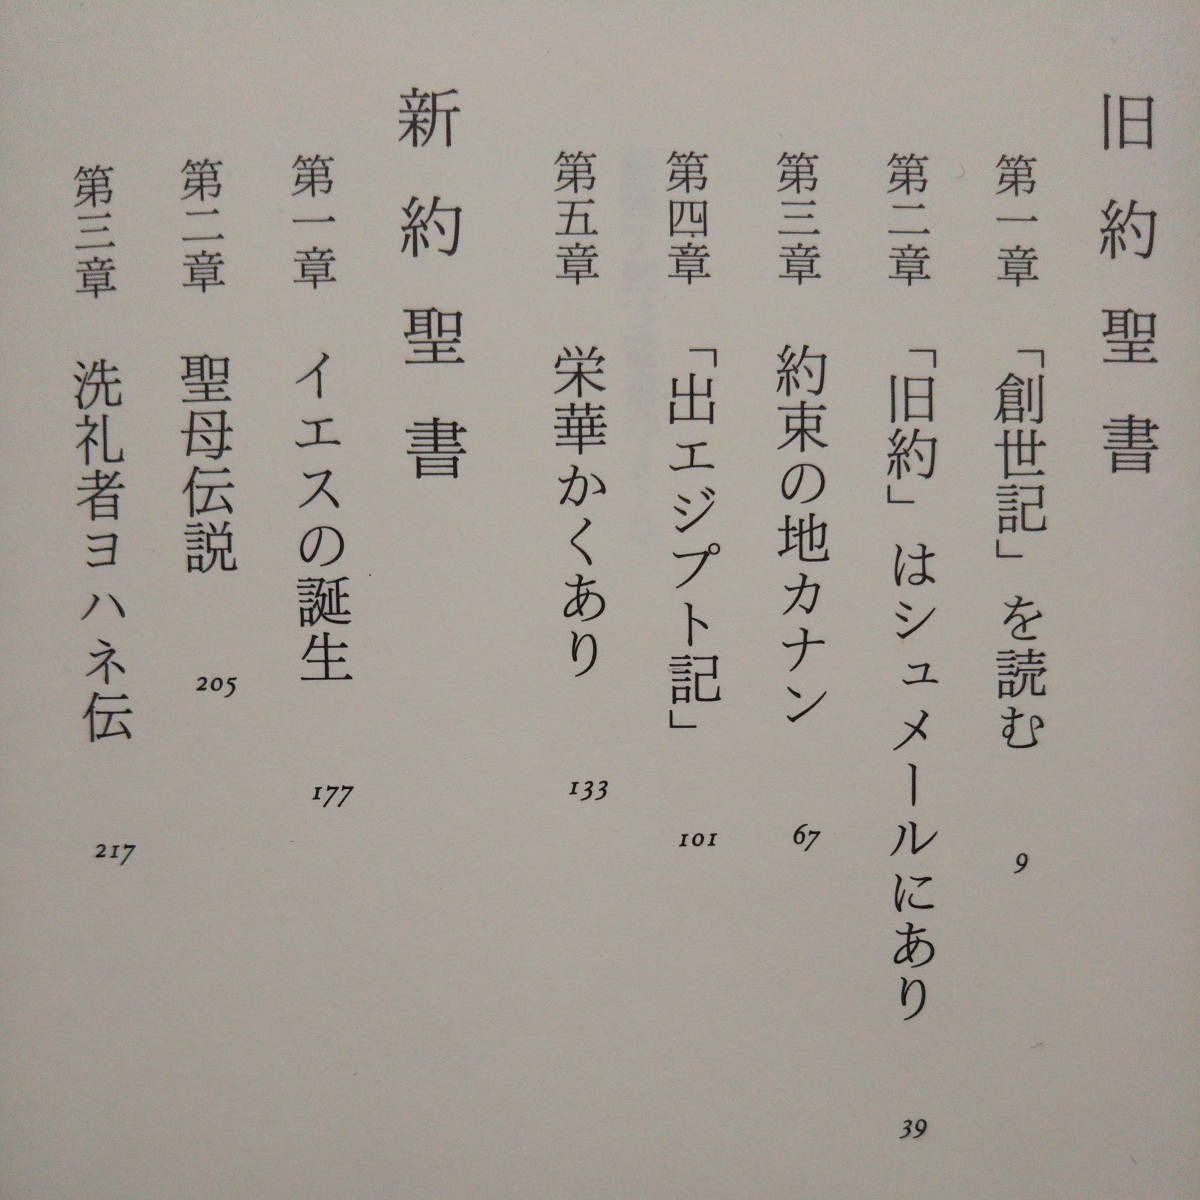 旧約聖書
第一章 「創世記」を読む 9
第二章 「旧約」はシュメールにあり 39
第三章 約束の地カナン 67
第四章 「出エジプト記」 101
第五章 栄華かくあり 133
新約聖書
第一章 イエスの誕生 177
第二章 聖母伝説 205
第三章 洗礼者ヨハネ伝 217